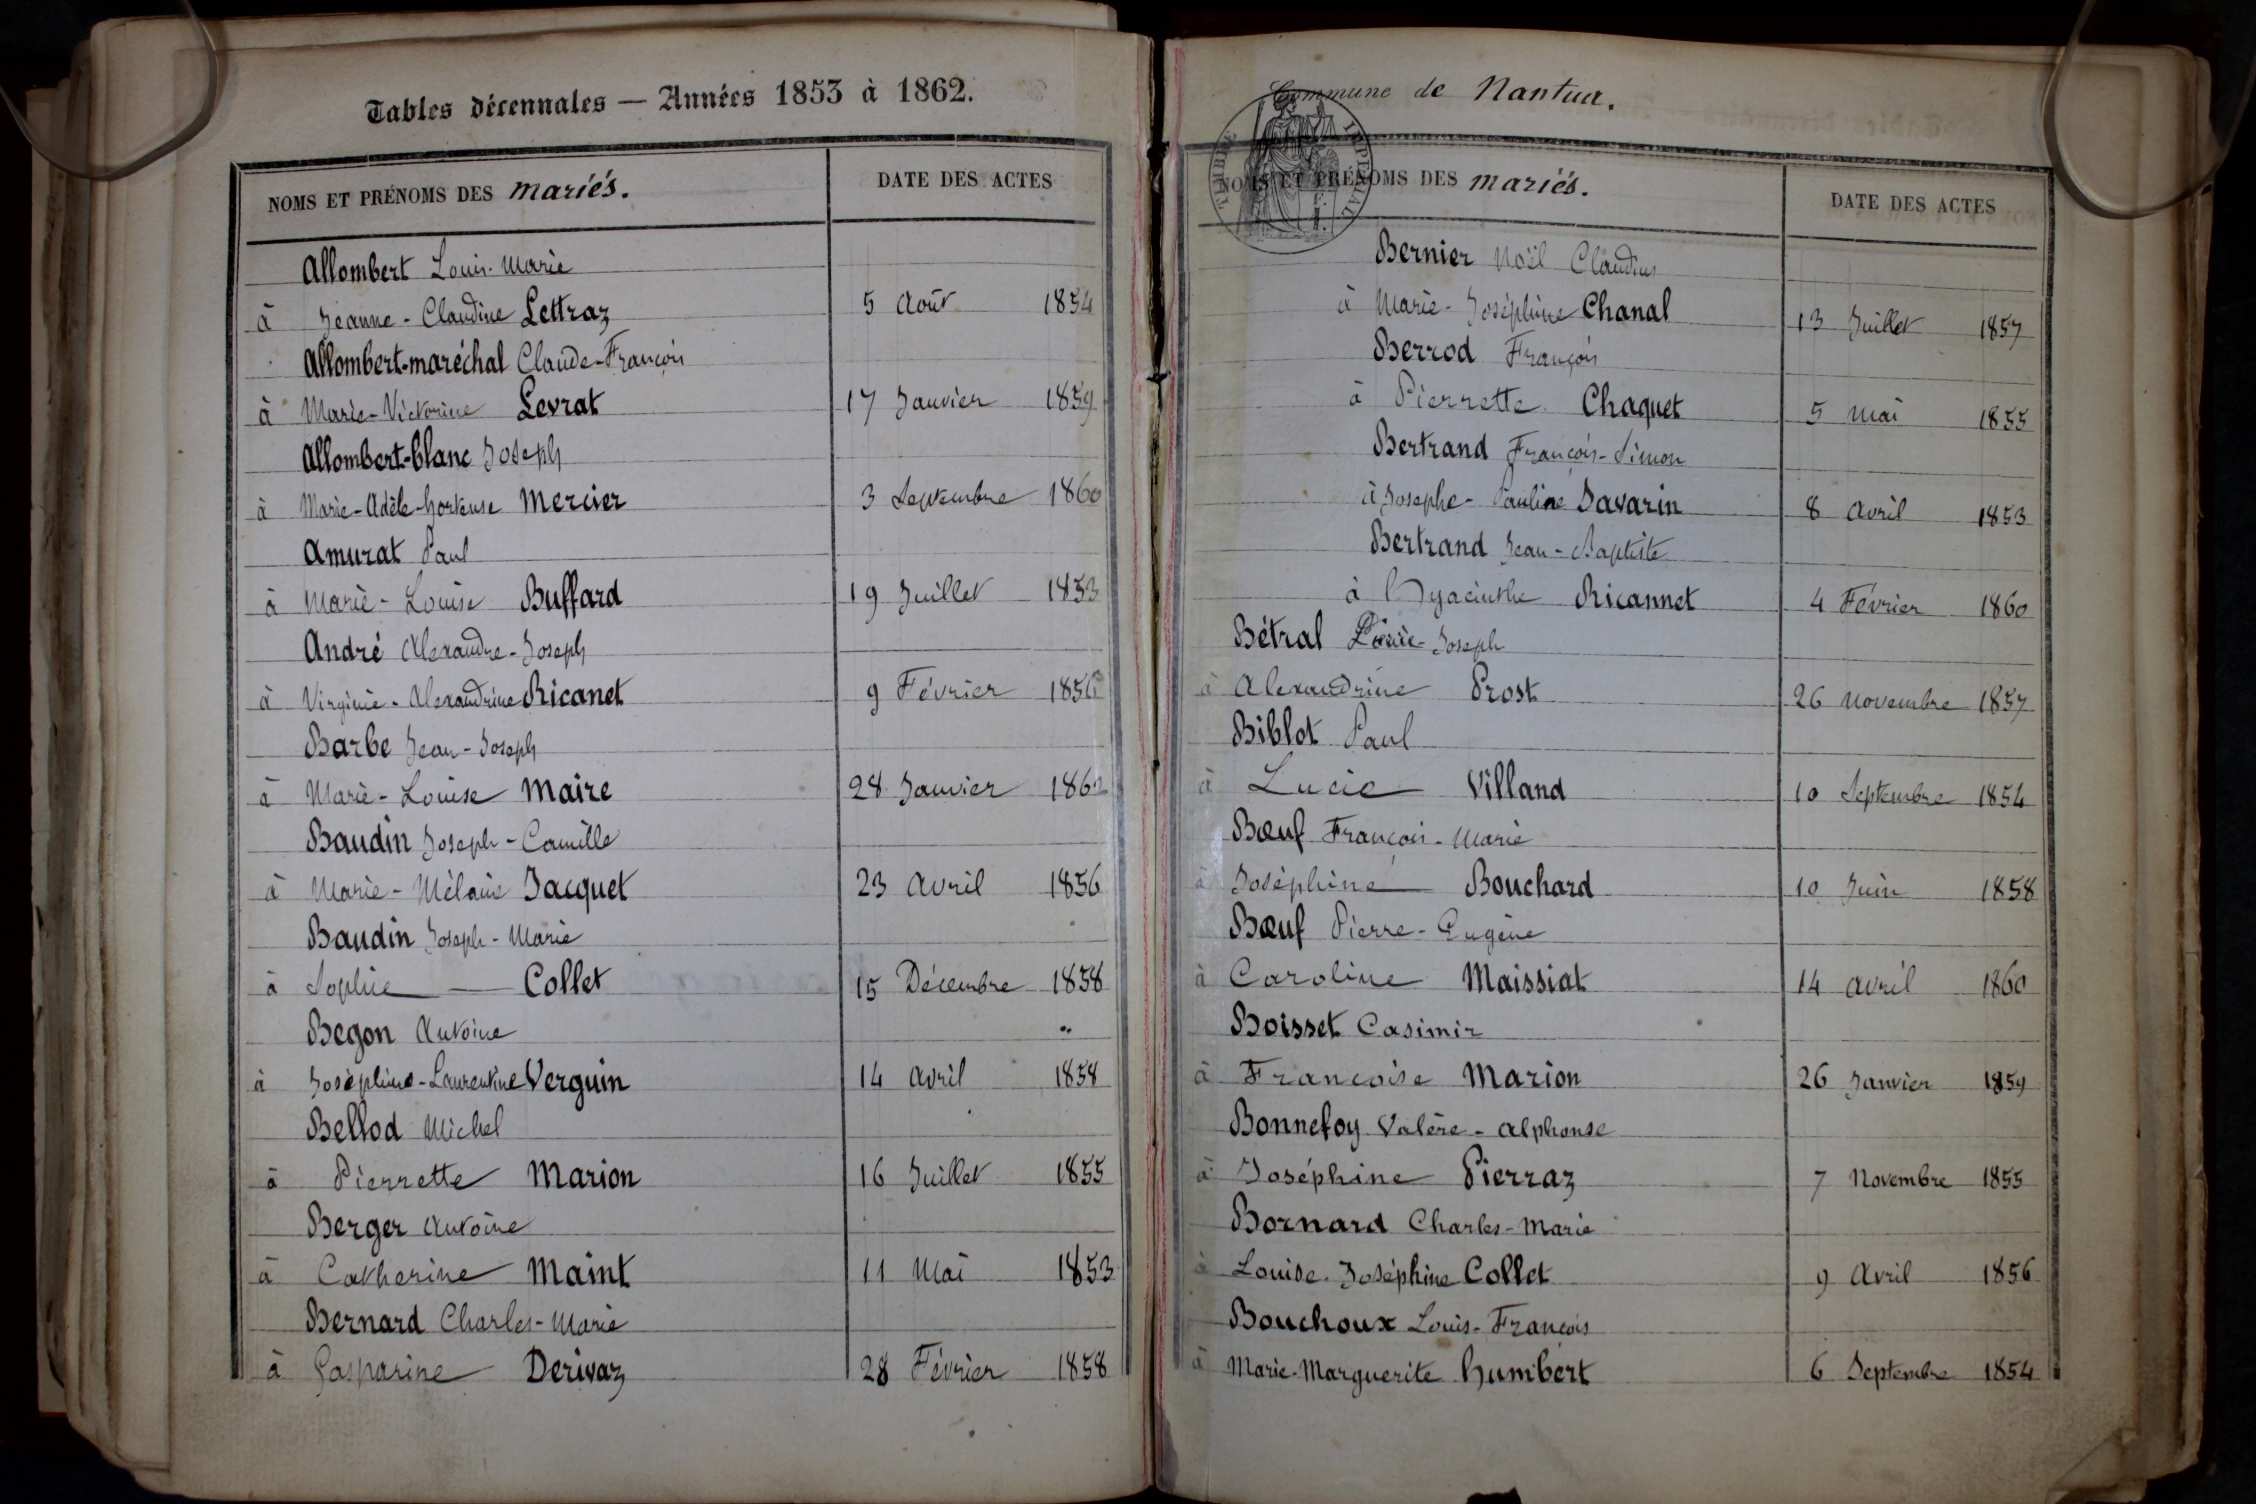 Tables décennales — Années 1853 à 1862.
NOMS ET PRÉNOMS DES mariés. DATE DES ACTES
Allombert Louis-Marie
à Jeanne-Claudine Lettraz 5 Août 1854
Allombert-maréchal Claude-François
à Marie-Victorine Levrat 17 Janvier 1859
Allombert-blanc Joseph
à Marie-Adèle-hortense Mercier 3 Septembre 1860
Amurat Paul
à Marie-Louise Buffard 19 Juillet 1853
André Alexandre-Joseph
à Virginie-Alexandrine Ricanet 9 Février 1856
Barbe Jean-Joseph
à Marie-Louise Maire 28 Janvier 1862
Baudin Joseph-Camille
à Marie-Mélanie Jacquet 23 Avril 1856
Baudin Joseph-Marie
à Sophie — Collet 15 Décembre 1858
Begon Antoine
à Joséphine-Laurentine Verguin 14 Avril 1858
Bellod Michel
à Pierrette Marion 16 Juillet 1855
Berger Antoine
à Catherine Maint 11 Mai 1853
Bernard Charles-Marie
à Gasparine Derivaz 28 Février 1858
Commune de Nantua.
TIMBRE IMPÉRIAL
NOMS ET PRÉNOMS DES mariés. DATE DES ACTES
Bernier Noël Claudius
à Marie-Joséphine Chanal 13 Juillet 1857
Berrod François
à Pierrette Chaquet 5 Mai 1855
Bertrand François-Simon
à Josephe-Pauline Savarin 8 Avril 1853
Bertrand Jean-Baptiste
à Hyacinthe Ricannet 4 Février 1860
Bétral Joseph
à Alexandrine Prost 26 Novembre 1857
Biblot Paul
à Lucie Villand 10 Septembre 1854
Bœuf François-Marie
à Joséphine Bouchard 10 Juin 1858
Bœuf Pierre-Eugène
à Caroline Maissiat 14 Avril 1860
Boisset Casimir
à Francoise Marion 26 Janvier 1859
Bonnefoy Valère-Alphonse
à Joséphine Pierraz 7 Novembre 1855
Bornard Charles-Marie
à Louise-Joséphine Collet 9 Avril 1856
Bouchoux Louis-François
à Marie-Marguerite humbert 6 Septembre 1854